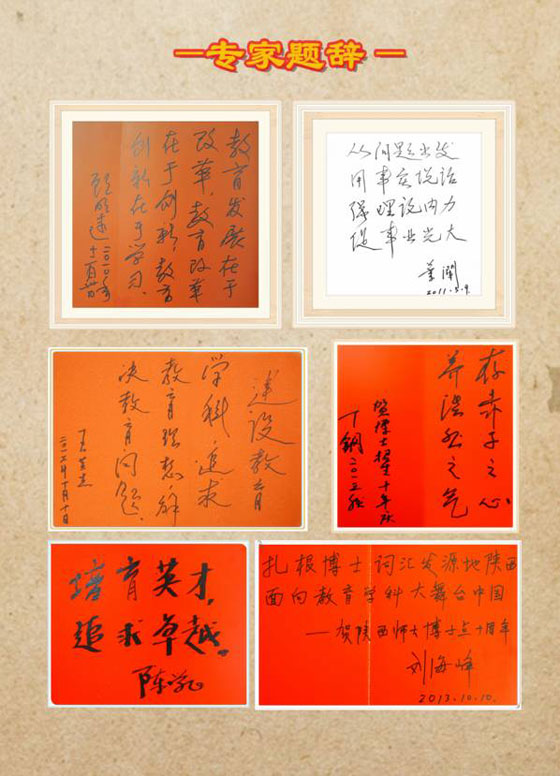 专家题辞
教育发展在于
改革,教育改革
在于创新,教育
创新在于学习。
顾明远
从问题出发
用事实说话
强理论内力
促事业光大
叶澜
2011.5.9.
建设教育
学科追求
教育理想解
决教育问题。
存赤子之心
养浩然之气
贺博士
十年庆
丁钢二〇一三秋
培育英才,
追求卓越。
陈学飞
扎根博士词汇发源地陕西
面向教育学科大舞台中国
——贺陕西师大博士点十周年
刘海峰
2013.10.10.